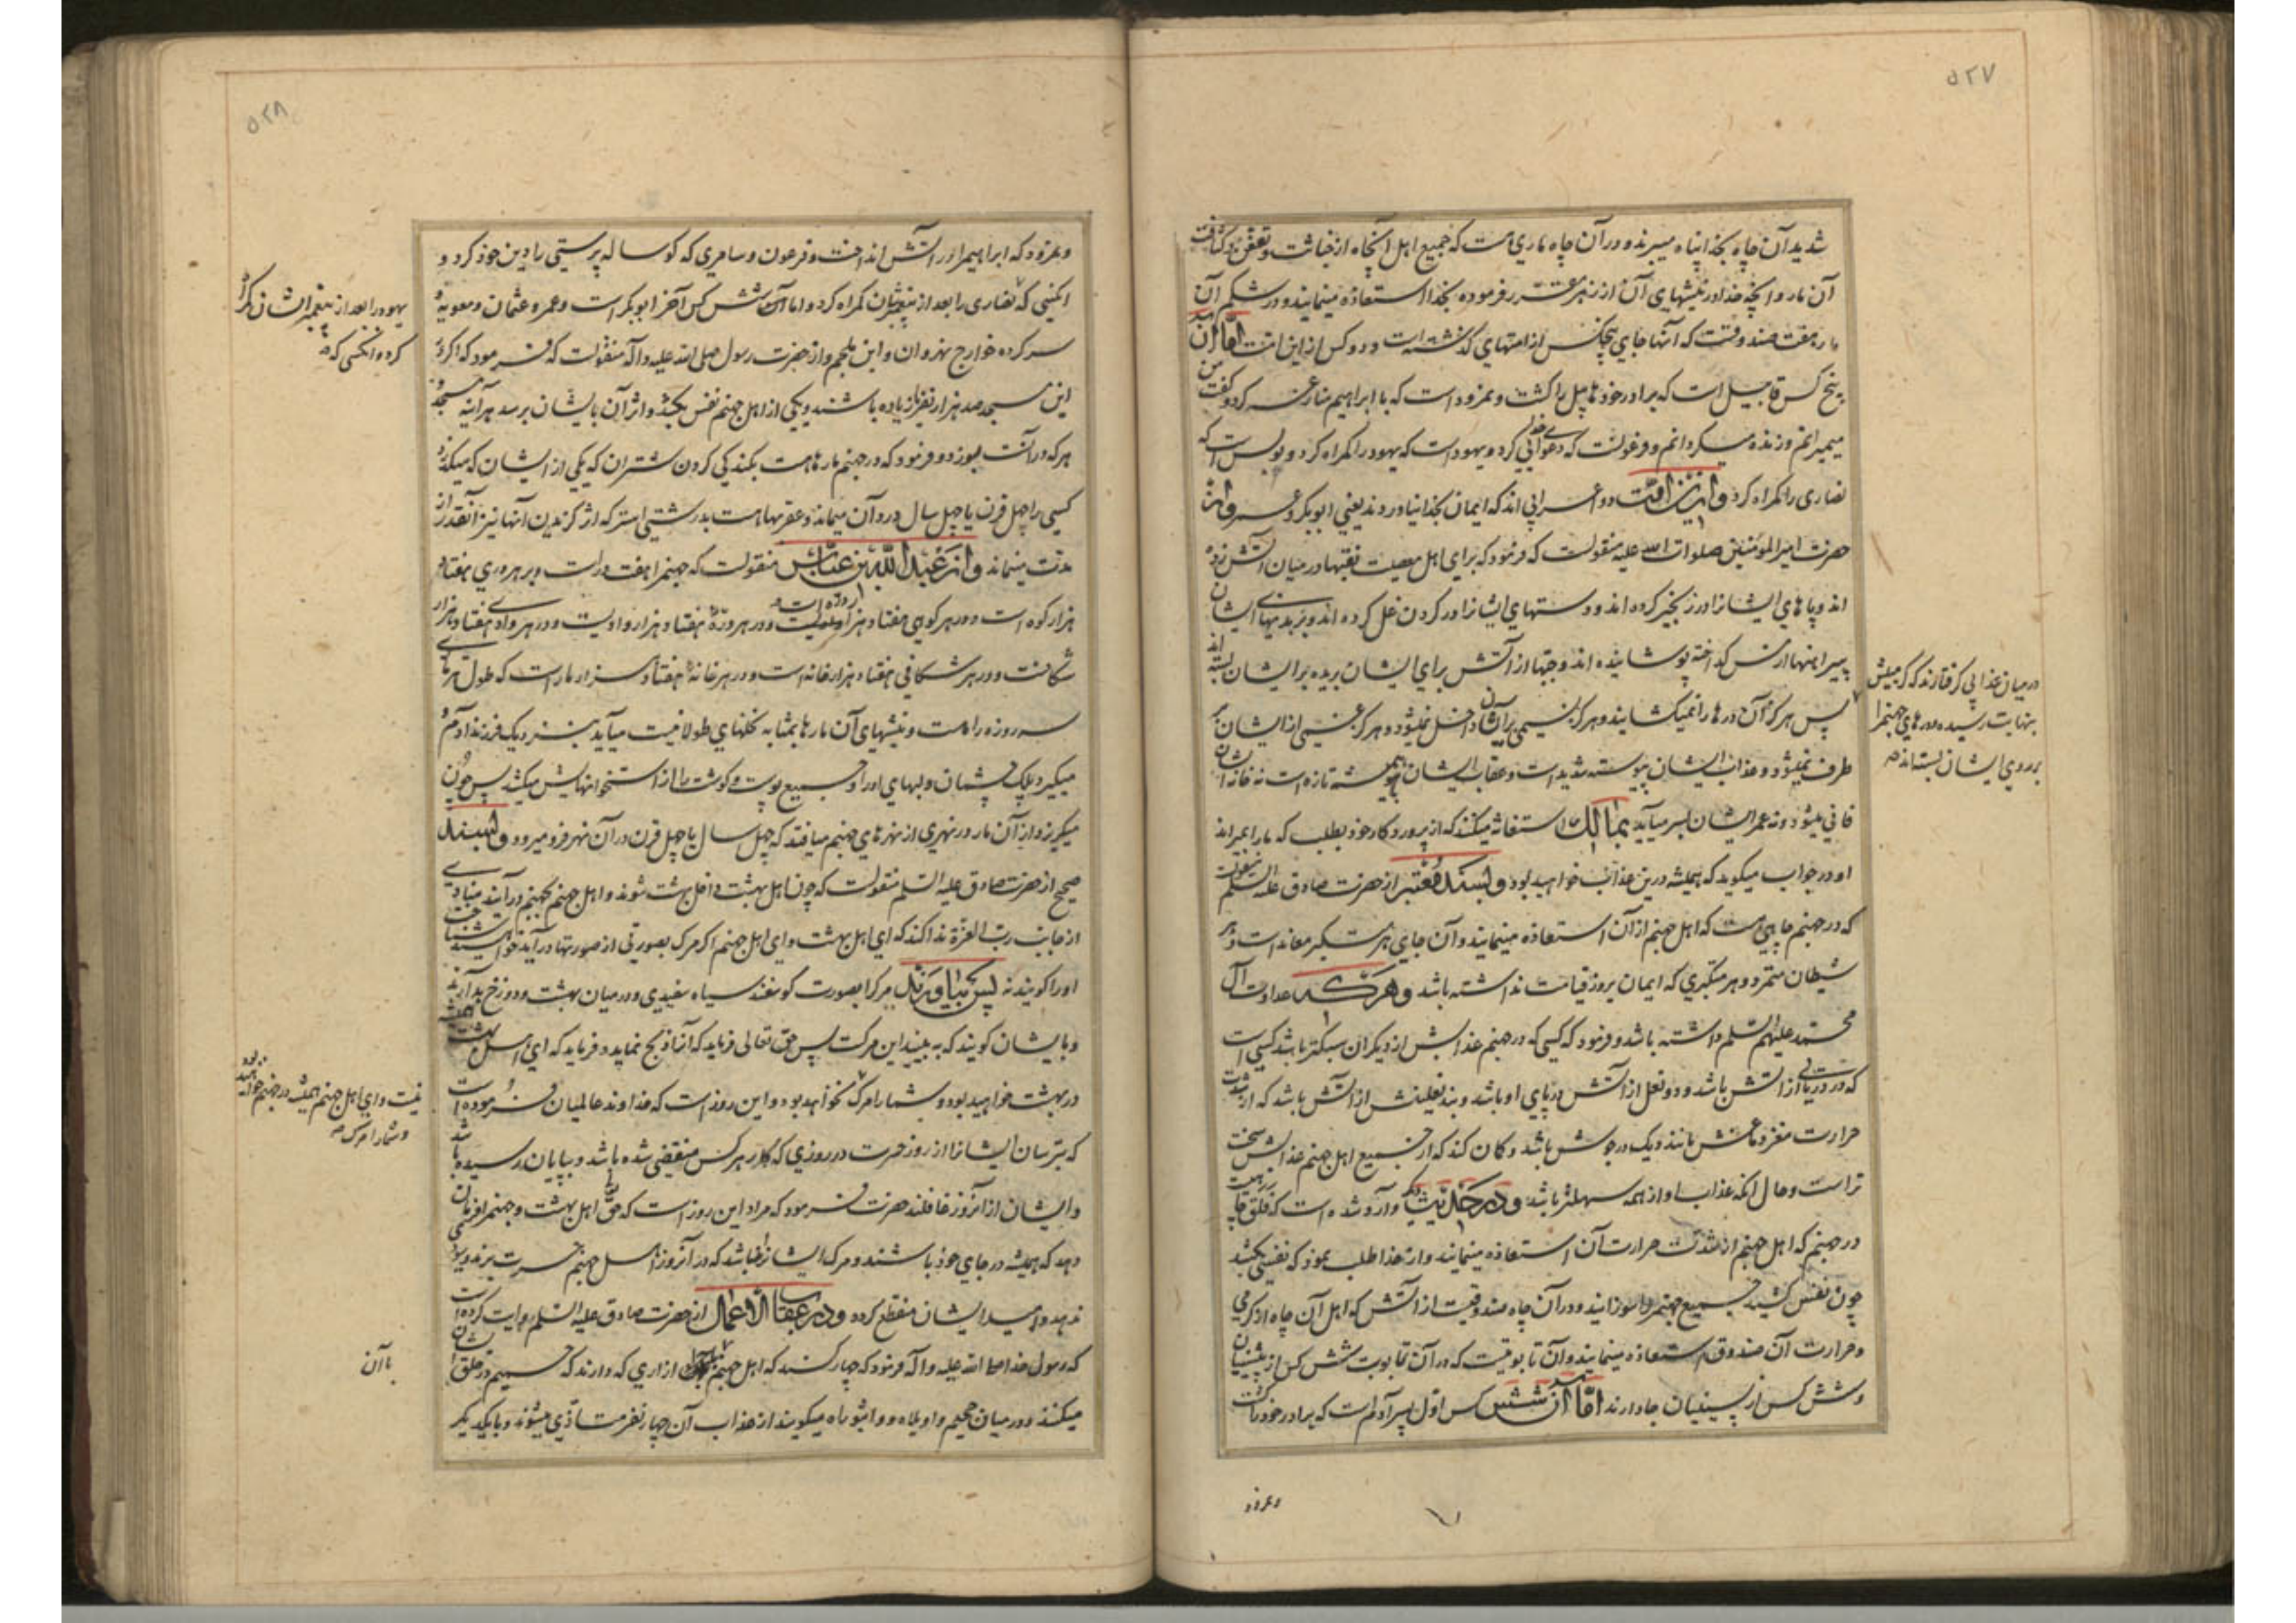 ۵۲۷
شدید آن چاه بخدا پناه میبرند و در آن چاه ماری هست که جمیع اهل آنچاه از خباثت و تعفن و کثافت
آن مار و آنچه خدا در نیشهای آن از زهر مقرر فرموده بخدا استعاذه مینمایند و در شکم آن
مار هفت صندوقست که آنها جای پنج کس از امتهای گذشته است و دو کس از این امت اما آن
پنج کس قابیل است که برادر خود هابیل را کشت و نمرود است که با ابراهیم منازعه کرد و گفت من
میمیرانم و زنده میگردانم و فرعونست که دعوای خدایی کرد و یهود است که یهود را گمراه کرد و بولس است که
نصاری را گمراه کرد و از این امت دو اعرابی اند که ایمان بخدا نیاوردند یعنی ابوبکر و عمر و از
حضرت امیر المومنین صلوات الله علیه منقولست که فرمود که برای اهل معصیت نقبها در میان آتش زده
اند و پاهای ایشانرا در زنجیر کرده اند و دستهای ایشانرا در گردن غل کرده اند و بر بدنهای ایشان
پیراهنها از مس گداخته پوشانیده اند و جبها از آتش برای ایشان بریده بر ایشان بسته اند
در میان عذابی گرفتارند که گرمیش
بنهایت رسیده و درهای جهنم را
بر روی ایشان بسته اند
پس هرگز آن درها را نمیگشایند و هرگز نسیمی بر ایشان داخل نمیشود و هرگز غمی از ایشان بر
طرف نمیشود و عذاب ایشان پیوسته شدید است و عقاب ایشان همیشه تازه است نه خانه ایشان
فانی میشود و نه عمر ایشان بسر میآید بمالک استغاثه میکنند که از پروردگار خود بطلب که ما را بمیراند
او در جواب میگوید که همیشه درین عذاب خواهید بود و بسند معتبر از حضرت صادق علیه السلم منقولست
که در جهنم چاهی هست که اهل جهنم از آن استعاذه مینمایند و آن جای هر متکبر معاند است و هر
شیطان متمرد و هر متکبری که ایمان بروز قیامت نداشته باشد و هر که عداوت آل
محمد علیهم السلم داشته باشد و فرمود که کسی که در جهنم عذابش از دیگران سبکتر باشد کسی است
که در دریایی از آتش باشد و دو نعل از آتش در پای او باشد و بند نعلینش از آتش باشد که از شدت
حرارت مغز دماغش مانند دیگ در جوش باشد و گمان کند که از جمیع اهل جهنم عذابش سخت
تر است و حال آنکه عذاب او از همه سهلتر باشد و در حدیث دیگر وارد شده است که فلق چاهیست
در جهنم که اهل جهنم از شدت حرارت آن استعاذه مینمایند و از خدا طلب نمود که نفسی بکشد
چون نفس کشید جمیع جهنم را سوزانید و در آن چاه صندوقیست از آتش که اهل آن چاه از گرمی
و حرارت آن صندوق استعاذه مینمایند و آن تابوتیست که در آن تابوت شش کس از پیشینیان
و شش کس از پسینیان جا دارند اما آن شش کس اول پسر آدم است که برادر خود را کشت
و نمرود
۵۲۸
و نمرود که ابراهیم را در آتش انداخت و فرعون و سامری که گوساله پرستی را دین خود کرد و
آنکسی که نصاری را بعد از پیغمبرشان گمراه کرد و اما آن شش کس آخر ابوبکر است و عمر و عثمان و معویه و
یهود را بعد از پیغمبر ایشان گمراه
کرد و آنکسی که
سرکرده خوارج نهروان و ابن ملجم و از حضرت رسول صلی الله علیه و آله منقولست که فرمود که اگر در
این مسجد صد هزار نفر یا زیاده باشند و یکی از اهل جهنم نفس بکشد و اثر آن بایشان برسد هر آینه مسجد و
هر که در آنست بسوزد و فرمود که در جهنم مارها هست بگندگی گردن شتران که یکی از ایشان که میگزد
کسی را چهل قرن یا چهل سال در آن میماند و عقربها هست بدرشتی استر که اثر گزیدن آنها نیز آنقدر از
مدت میماند و از عبد الله بن عباس منقولست که جهنم را هفت در است و بر هر دری هفتاد
هزار کوه است و در هر کوهی هفتاد هزار دره است و در هر دره هفتاد هزار وادیست و در هر وادی هفتاد هزار
شکافست و در هر شکافی هفتاد هزار خانه است و در هر خانه هفتاد هزار مار است که طول هر ماری
سه روزه راهست و نیشهای آن مارها بمثابه نخلهای طولانیست میآید بنزدیک فرزند آدم و
میگیرد پلک چشمان و لبهای او را و جمیع پوست و گوشت را از استخوانهایش میکشد پس چون
میگریزد از آن مار در نهری از نهرهای جهنم میافتد که چهل سال یا چهل قرن در آن نهر فرو میرود و بسند
صحیح از حضرت صادق علیه السلم منقولست که چون اهل بهشت داخل بهشت شوند و اهل جهنم بجهنم درآیند منادی
از جانب رب العزة ندا کند که ای اهل بهشت و ای اهل جهنم اگر مرگ بصورتی از صورتها درآید خواهید شناخت
او را گویند نه پس بیاورند مرگ را بصورت گوسفند سیاه سفیدی و در میان بهشت و دوزخ بدارند
و بایشان گویند که به بینید این مرگست پس حق تعالی فرماید که آنرا ذبح نمایند و فرماید که ای اهل بهشت همیشه
در بهشت خواهید بود و شما را مرگ نخواهد بود و این روز است که خداوند عالمیان فرموده است
نیست و ای اهل جهنم همیشه در جهنم خواهید بود
و شما را مرگ
که بترسان ایشانرا از روز حسرت در روزی که کار هر کس منقضی شده باشد و بپایان رسیده باشد
و ایشان از آنروز غافلند حضرت فرمود که مراد این روز است که حق تعالی اهل بهشت و جهنم را فرمان
دهد که همیشه در جای خود باشند و مرگ ایشانرا نباشد که در آنروز اهل جهنم حسرت برند و سودی
ندهد و امید ایشان منقطع گردد و در عقاب الاعمال از حضرت صادق علیه السلم روایت کرده است
که رسول خدا صلی الله علیه و آله فرمود که چهار کسند که اهل جهنم با آن آزاری که دارند که حمیم در حلق ایشان
با آن
میکنند و در میان جحیم واویلاه و واثبوراه میگویند از عذاب آن چهار نفر متاذی میشوند و با یکدیگر